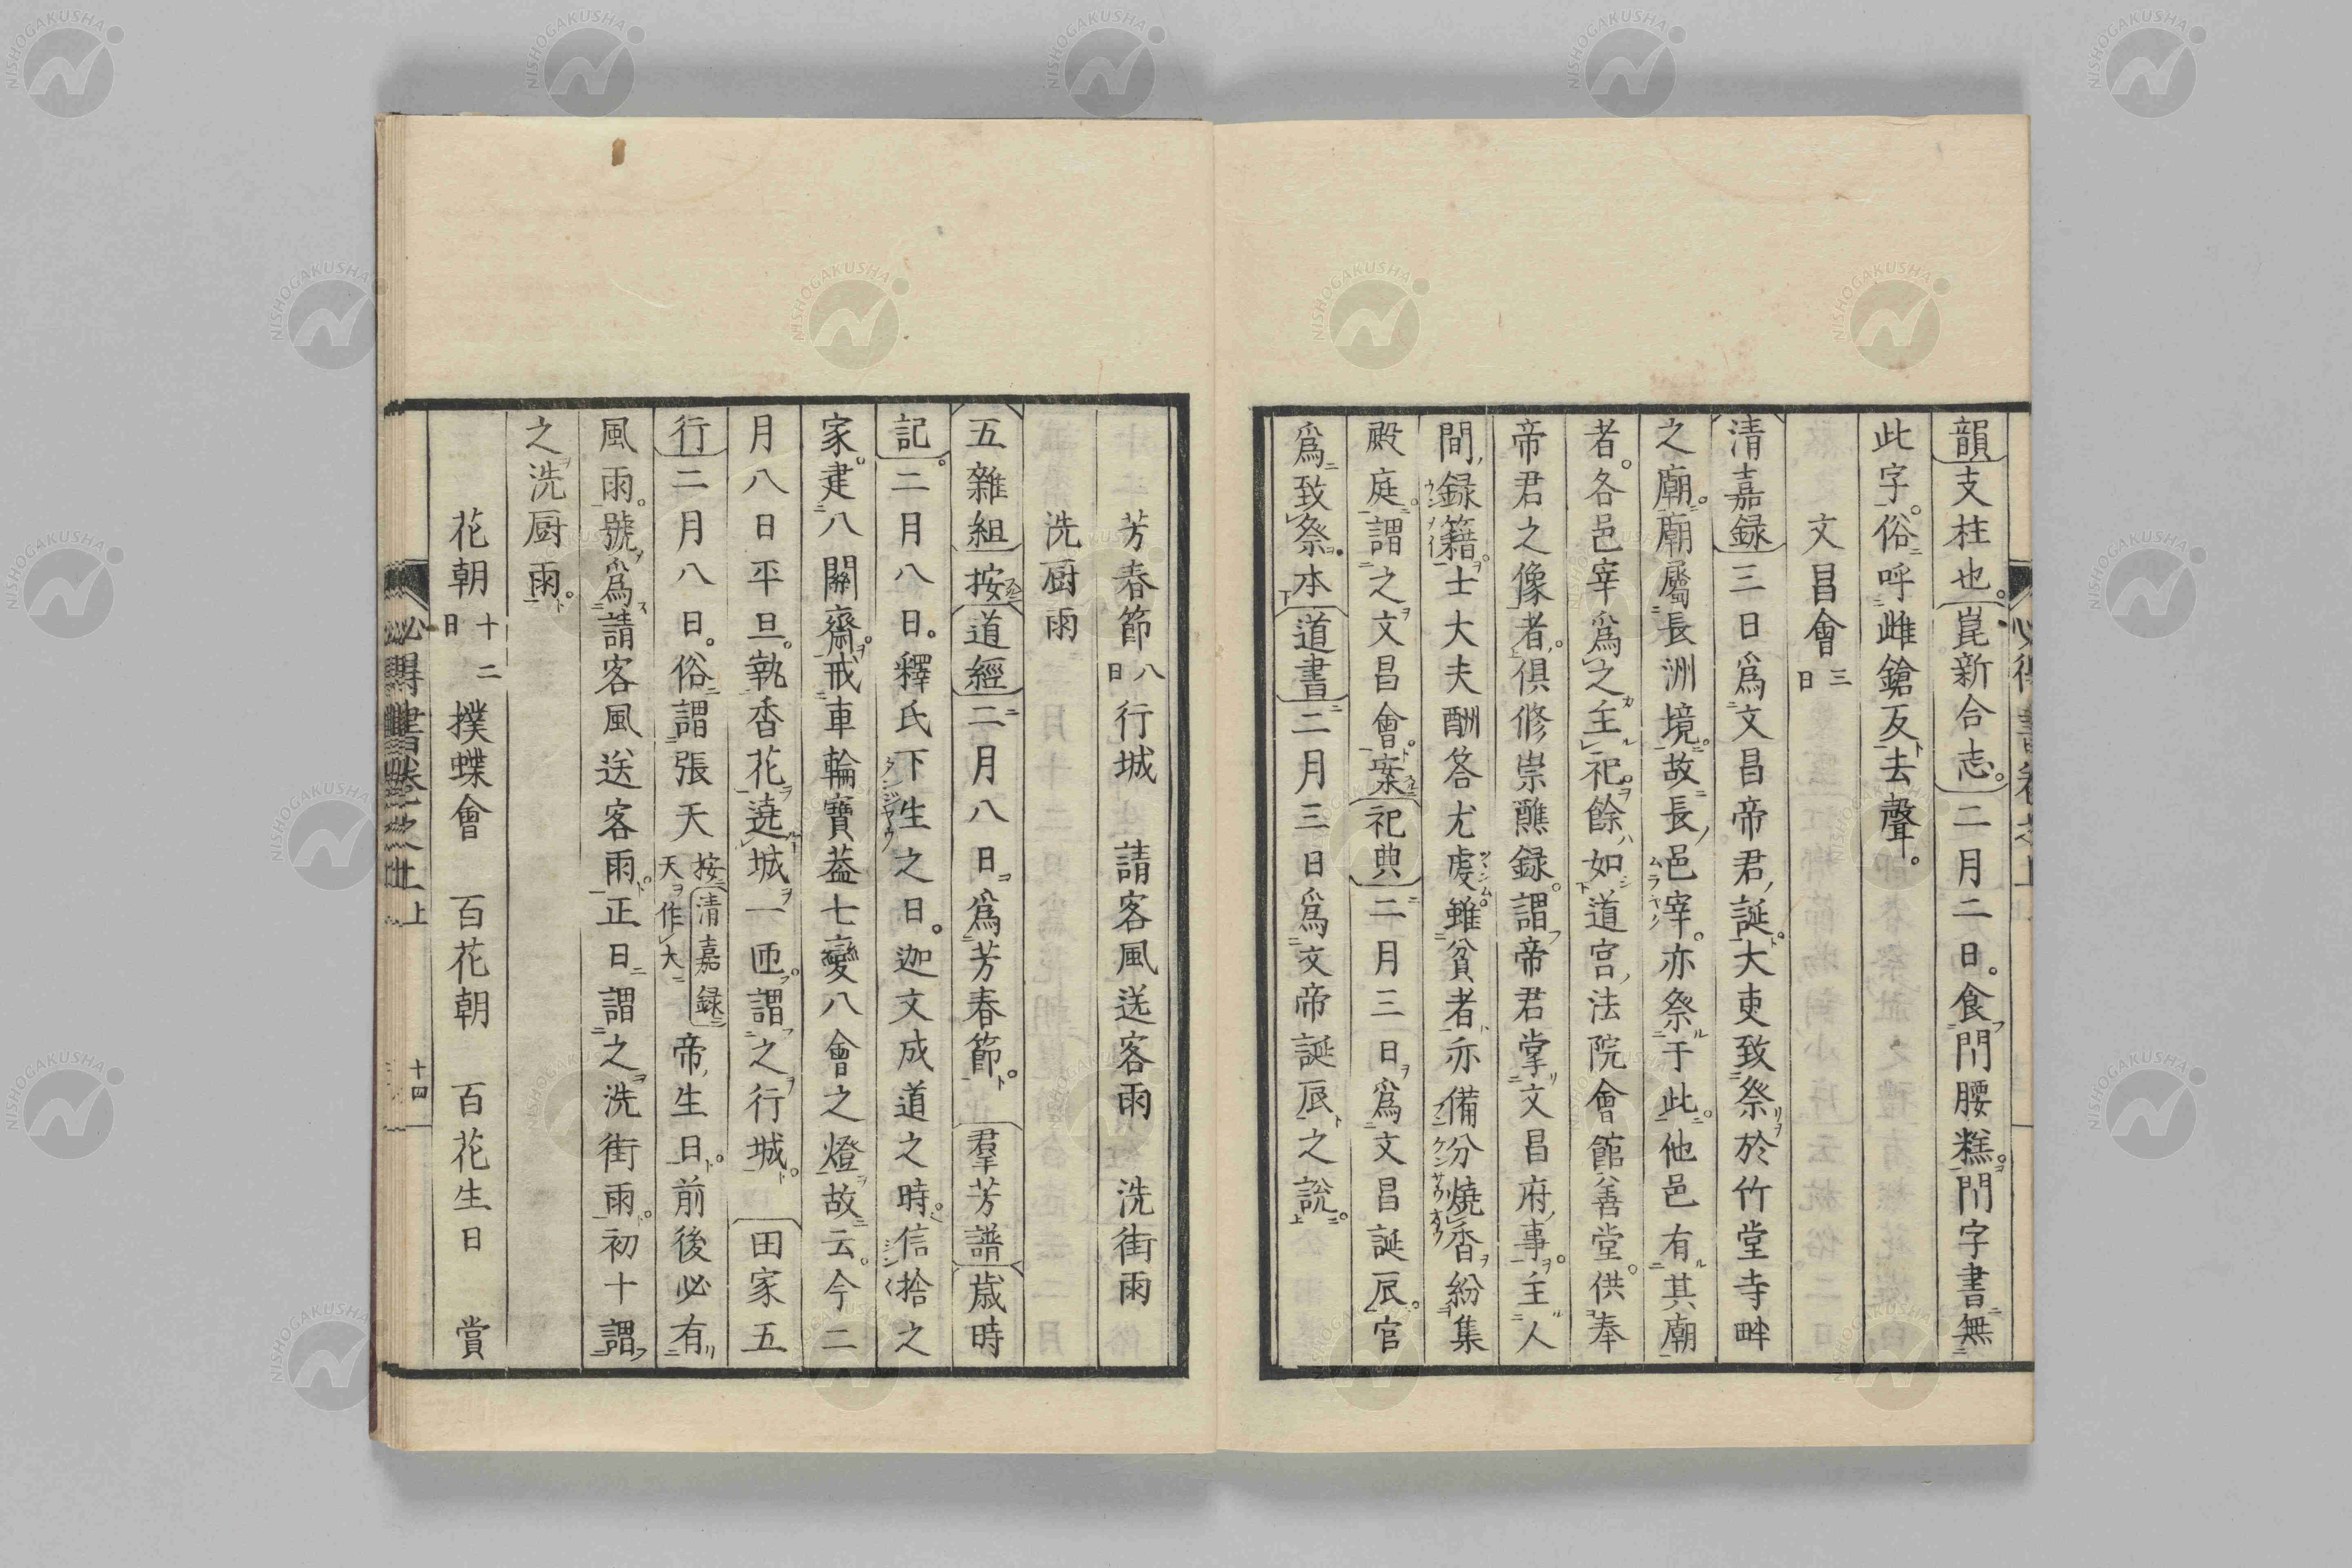 韻支柱也。崑新合志。二月二日。食閂腰糕。閂字書無
此字。俗呼雌鎗反去聲。
文昌會三日
清嘉録三日爲文昌帝君誕大吏致祭於竹堂寺畔
之廟。廟屬長洲境。故長邑宰亦祭于此。他邑有其廟
者。各邑宰爲之主祀。餘如道宮法院會館善堂。供奉
帝君之像者。俱修崇醮録。謂帝君掌文昌府事。主人
間録籍。士大夫酬答尤虔。雖貧者亦備分燒香紛集
殿庭。謂之文昌會。案祀典二月三日爲文昌誕辰。官
爲致祭。本道書二月三日爲文帝誕辰之説。
芳春節八日 行城 請客風送客雨 洗街雨
洗厨雨
五雜組按道經二月八日爲芳春節。羣芳譜歳時
記。二月八日。釋氏下生之日。迦文成道之時。信捨之
家。建八關齋。戒車輪寶葢七變八會之燈故云。今二
月八日平旦。執香花遶城一匝。謂之行城。田家五
行二月八日。俗謂張天按清嘉録天作大帝生日。前後必有
風雨。號爲請客風送客雨。正日謂之洗街雨。初十謂
之洗厨雨。
花朝十二日 撲蝶會 百花朝 百花生日 賞
必得書卷之上 上 十四